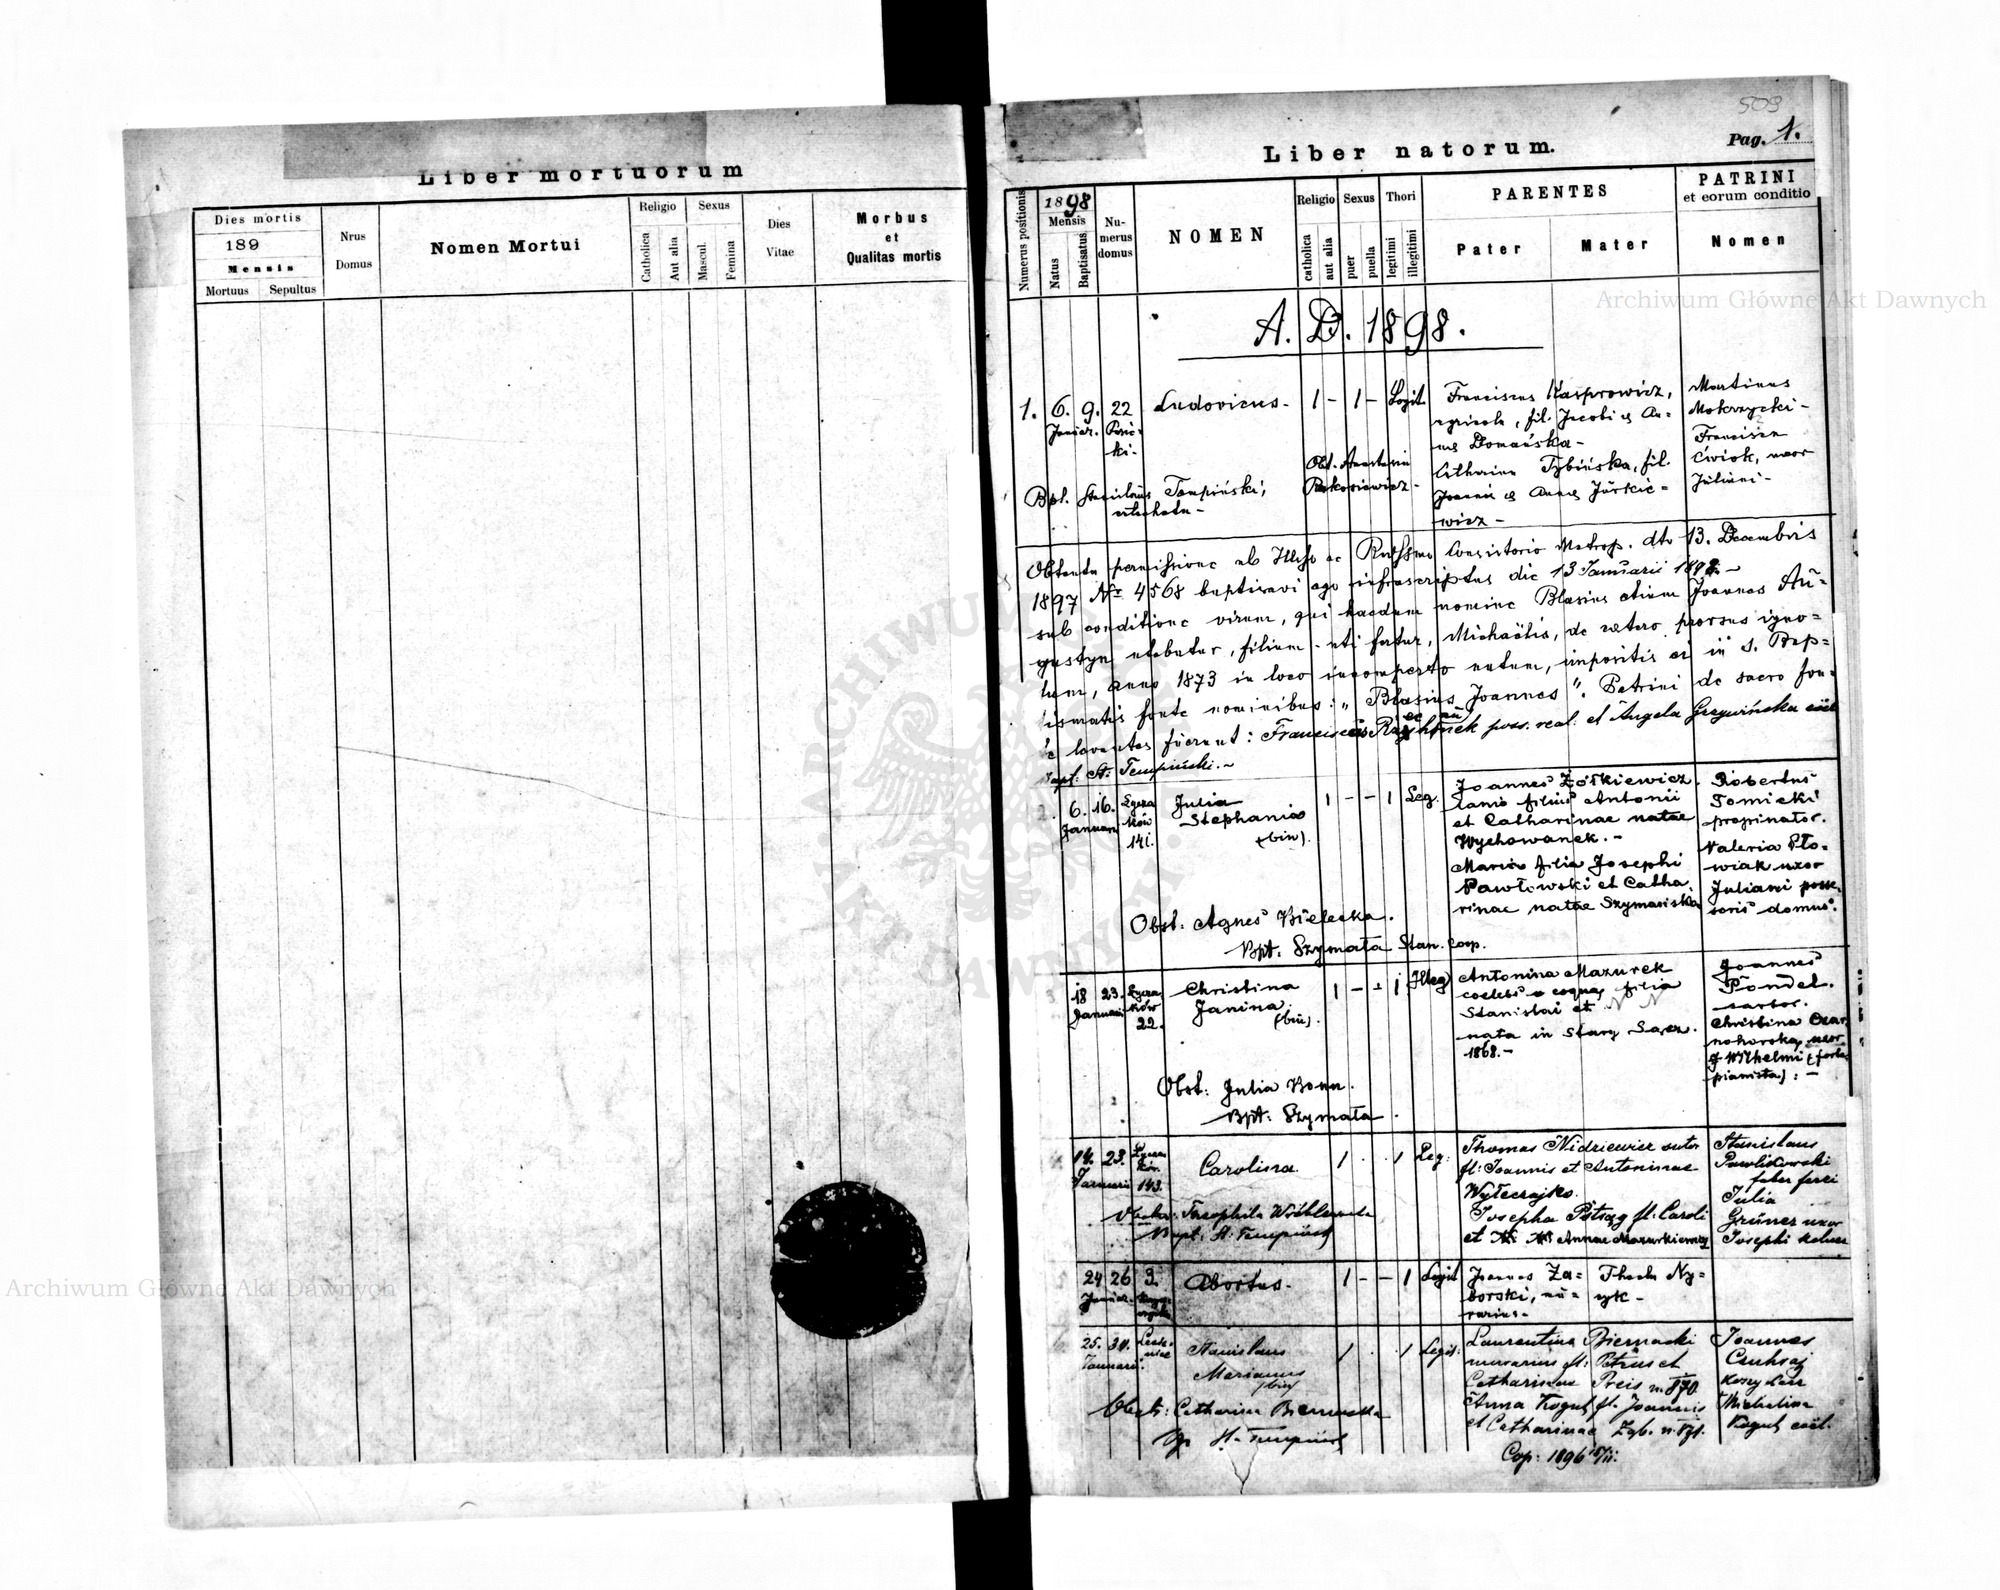 Liber mortuorum
Dies mortis
189
Mensis
Mortuus Sepultus
Nrus
Domus
Nomen Mortui
Religio
Catholica
Aut alia
Sexus
Mascul.
Femina
Dies
Vitae
Morbus
et
Qualitas mortis
509
Pag. 1.
Liber natorum.
Numerus positionis
1898
Mensis
Natus
Baptisatus
Nu-
merus
domus
NOMEN
Religio
catholica
aut alia
Sexus
puer
puella
Thori
legitimi
illegitimi
PARENTES
Pater
Mater
PATRINI
et eorum conditio
Nomen
A. D. 1898.
1. 6. 9. 22 Ludovicus. 1 - 1 - Legit.
Januar.
Franciscus Kasprowicz,
agricola, fil. Jacobi & An-
nae Domańska-
Catharina Tybińska, fil.
Joannis & Annae Jurkie-
wicz-
Martinus
Mokrzycki-
Francisca
Ćwiok, uxor
Juliani-
Obst. Anastasia
Rokosiewicz-
Bpt. Stanislaus Tempiński,
Obtenta permissione ab Illsso ac Rndssmo Consistorio Metrop. dto 13. Decembris
1897 Nr 4568 baptisavi ego infrascriptus die 13 Januarii 1898.-
sub conditione virum, qui hacdum nomine Blasius etiam Joannes Au-
gustyn utebatur, filium - uti fertur, Michaëlis, de cetero prorsus igno-
tum, anno 1873 in loco incomperto natum, impositis ei in s. Bap-
tismatis fonte nominibus: "Blasius Joannes". Patrini de sacro fon-
te levantes fuerunt: Franciscus poss. real. et Angela Grzywińska
Bapt. St. Tempiński.-
2. 6. 16. Łycza
ków
141.
Januarii
Julia
Stephania
(bin).
1 - - 1 Leg.
Joannes Żółkiewicz
lanio filius Antonii
et Catharinae natae
Wychowanek.-
Maria filia Josephi
Pawłowski et Catha-
rinae natae Szymańska
Robertus
Tomicki
propinator.
Valeria Pło-
wiak uxor
Juliani posse-
soris domus.
Obst. Agnes Bielecka.
Bpt. Szymała Stan. Coop.
3 18 23. Łycza
ków
22.
Januarii
Christina
Janina.
(bin).
1 - - 1 Illeg
Antonina Mazurek
coelebs coqua, filia
Stanislai et N N
nata in Stary Sącz.
1868.-
Joannes
Pondel.
sartor.
Christina Czar
nohorska, uxor
Wilhelmi (forte
pianista).-
Obst: Julia Bonn.
Bpt: Szymała.
14. 23. Łycza
ków.
143.
Januarii
Carolina.
1 . . 1 Leg:
Thomas Nidziewicz sutor
fil: Joannis et Antoninae
Josepha fil: Caroli
et Annae Mazurkiewicz
Stanislaus
Pawlikowski
faber ferri
Julia
Grüner uxor
Josephi
Bapt. St. Tempiński
24 26 9.
Januar.
Abortus.
1 - - 1 Legit
Joannes Za-
borski, mu-
rarius-
Thecla Ny-
zyk-
25. 30.
Januarii.
Stanislaus
Marianus
(bin)
1 . . 1 Legit:
Laurentius Biernacki
murarius fil: Petri et
Catharinae Preis n. 870
Anna Kogut fil. Joannis
et Catharinae
Joannes
Michalina
Kogut coel.
Obst: Catharina
St. Tempiński
Cop: 1896
Archiwum Główne Akt Dawnych
Archiwum Główne Akt Dawnych
ARCHIWUM GŁÓWNE AKT DAWNYCH